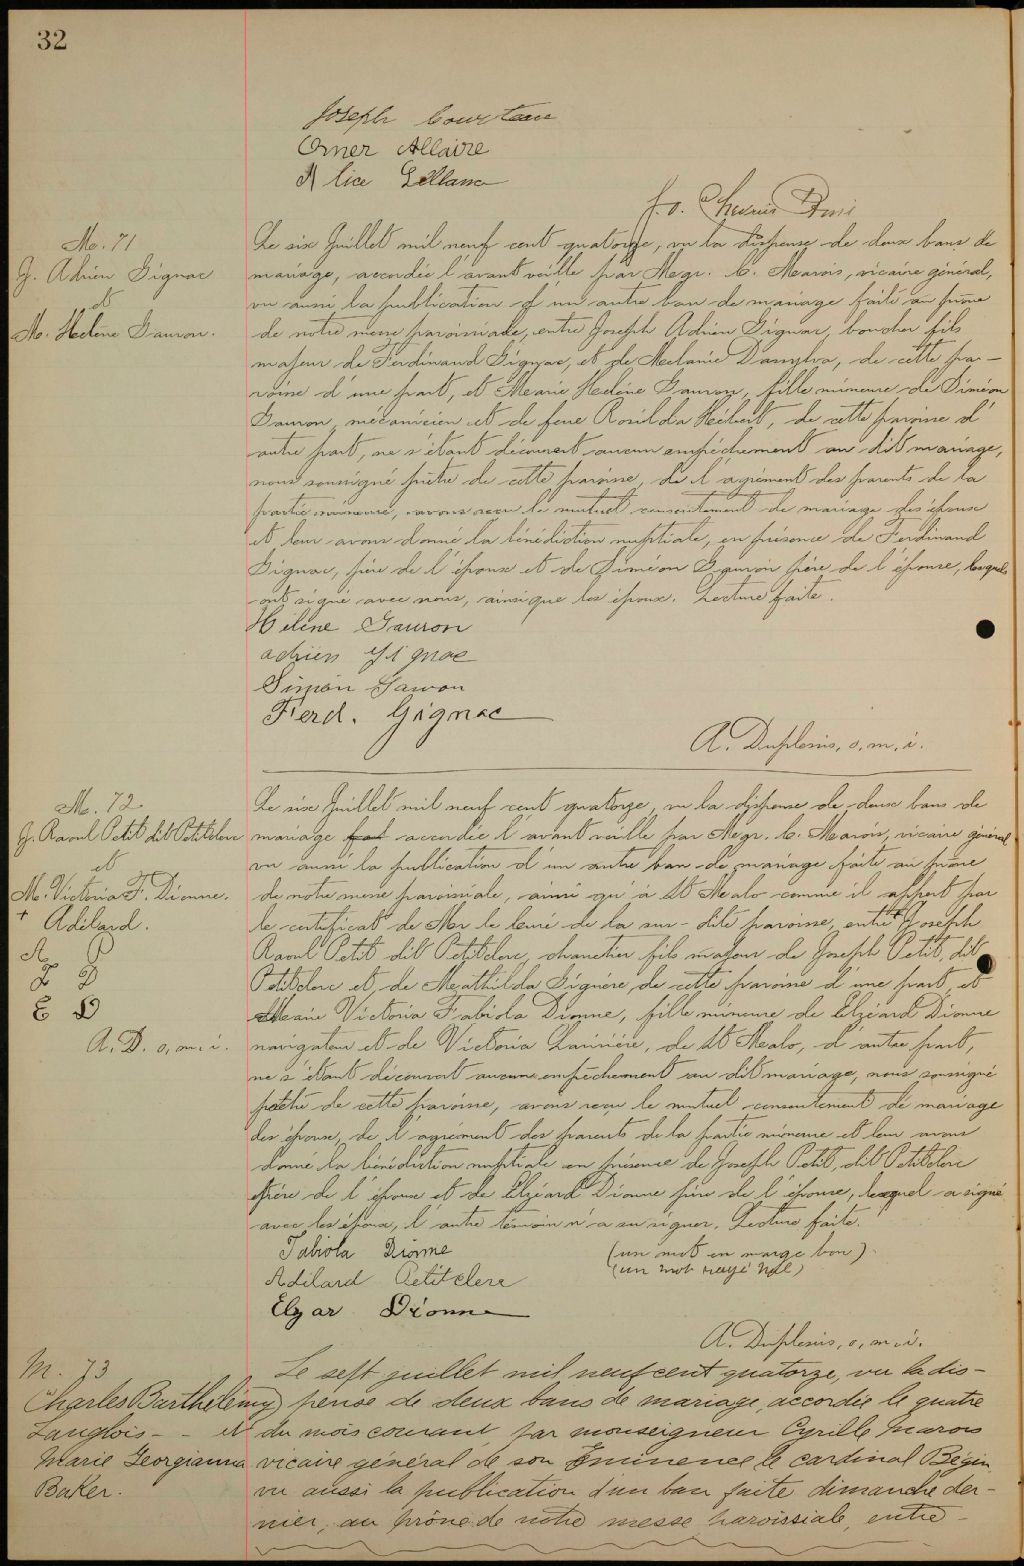 32
Joseph Courteau
Omer Allaire
Alice
f. o. Prêtre
M. 71
J. Adrien Gignac
et
M. Hélène Gauron.
Le six Juillet mil neuf cent quatorze, vu la dispense de deux bans de
mariage, accordée l'avant veille par Megr. C. Marois, vicaire général,
vu aussi la publication d'un autre ban de mariage faite au prône
de notre messe paroissiale, entre Joseph Adrien Gignac, boucher fils
majeur de Ferdinand Gignac, et de Mélanie Damylva, de cette par-
roisse d'une part, et Marie Hélène Gauron, fille mineure de Siméon
Gauron, mécanicien et de feue Rosilda Hébert, de cette paroisse d'
autre part, ne s'étant découvert aucun empêchement au dit mariage,
nous soussigné prêtre de cette paroisse, de l'agrément des parents de la
partie mineure, avons reçu le mutuel consentement de mariage des époux
et leur avons donné la bénédiction nuptiale, en présence de Ferdinand
Gignac, père de l'époux et de Siméon Gauron père de l'épouse, lesquels
ont signé avec nous, ainsi que les époux. Lecture faite.
Hélène Gauron
adrien Gignac
Siméon Gauron
Ferd. Gignac
A. Duplessis, o, m, i.
M. 72
J. Raoul Petit dit Petitclerc
et
M. Victoria F. Dionne.
+ Adélard.
A P
J P
E D
A. D. o, m. i.
Le six Juillet mil neuf cent quatorze, vu la dispense de deux bans de
mariage accordée l'avant veille par Megr. C. Marois, vicaire général
vu aussi la publication d'un autre ban de mariage faite au prône
de notre messe paroissiale, ainsi qu'à St Malo comme il appert par
le certificat de Mr le Curé de la sus-dite paroisse, entre + Joseph
Raoul Petit dit Petitclerc, charretier fils majeur de Joseph Petit, dit
Petitclerc et de Mathilda Giguère, de cette paroisse d'une part, et
Marie Victoria Fabiola Dionne, fille mineure de Elzéard Dionne
navigateur et de Victoria Larivière, de St Malo, d'autre part,
ne s'étant découvert aucun empêchement au dit mariage, nous soussigné
prêtre de cette paroisse, avons reçu le mutuel consentement de mariage
des époux, de l'agrément des parents de la partie mineure et leur avons
donné la bénédiction nuptiale en présence de Joseph Petit, dit Petitclerc
père de l'époux et de Elzéard Dionne père de l'épouse, lequel a signé
avec les époux, l'autre témoin n'a su signer. Lecture faite.
Fabiola Dionne
(un mot en marge bon).
(un mot rayé nul)
Adélard Petitclerc
Elzar Dionne
A. Duplessis, o, m, i.
M. 73
Charles Barthélémy
Langlois - - et
Marie Georgianna
Baker.
Le sept juillet mil neuf cent quatorze, vu la dis-
pense de deux bans de mariage, accordée le quatre
du mois courant, par monseigneur Cyrille Marois
vicaire général de son Eminence le cardinal Bégin,
vu aussi la publication d'un ban faite dimanche der-
nier, au prône de notre messe paroissiale, entre -